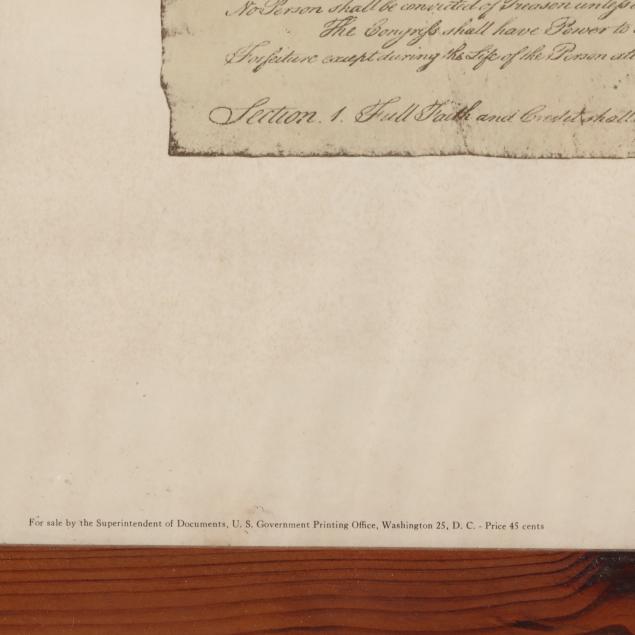 No Person shall be convicted of Treason unless
The Congreſs shall have Power to
Forfeiture except during the Life of the Person
Section. 1. Full Faith and Credit shall
For sale by the Superintendent of Documents, U. S. Government Printing Office, Washington 25, D. C. - Price 45 cents